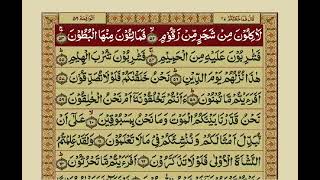 قال فما خطبکم ٢٧ الواقعة ٥٦
لَاٰكِلُوْنَ مِنْ شَجَرٍ مِّنْ زَقُّوْمٍ ﴿٥٢﴾ فَمَالِـُٔوْنَ مِنْهَا الْبُطُوْنَ ﴿٥٣﴾
فَشٰرِبُوْنَ عَلَيْهِ مِنَ الْحَمِيْمِ ﴿٥٤﴾ فَشٰرِبُوْنَ شُرْبَ الْهِيْمِ ﴿٥٥﴾
هٰذَا نُزُلُهُمْ يَوْمَ الدِّيْنِ ﴿٥٦﴾ نَحْنُ خَلَقْنٰكُمْ فَلَوْلَا تُصَدِّقُوْنَ ﴿٥٧﴾
اَفَرَءَيْتُمْ مَّا تُمْنُوْنَ ﴿٥٨﴾ ءَاَنْتُمْ تَخْلُقُوْنَهٗٓ اَمْ نَحْنُ الْخٰلِقُوْنَ ﴿٥٩﴾
نَحْنُ قَدَّرْنَا بَيْنَكُمُ الْمَوْتَ وَمَا نَحْنُ بِمَسْبُوْقِيْنَ ﴿٦٠﴾ عَلٰٓى اَنْ
نُّبَدِّلَ اَمْثَالَكُمْ وَنُنْشِئَكُمْ فِيْ مَا لَا تَعْلَمُوْنَ ﴿٦١﴾ وَلَقَدْ عَلِمْتُمُ
النَّشْاَةَ الْاُوْلٰى فَلَوْلَا تَذَكَّرُوْنَ ﴿٦٢﴾ اَفَرَءَيْتُمْ مَّا تَحْرُثُوْنَ ﴿٦٣﴾